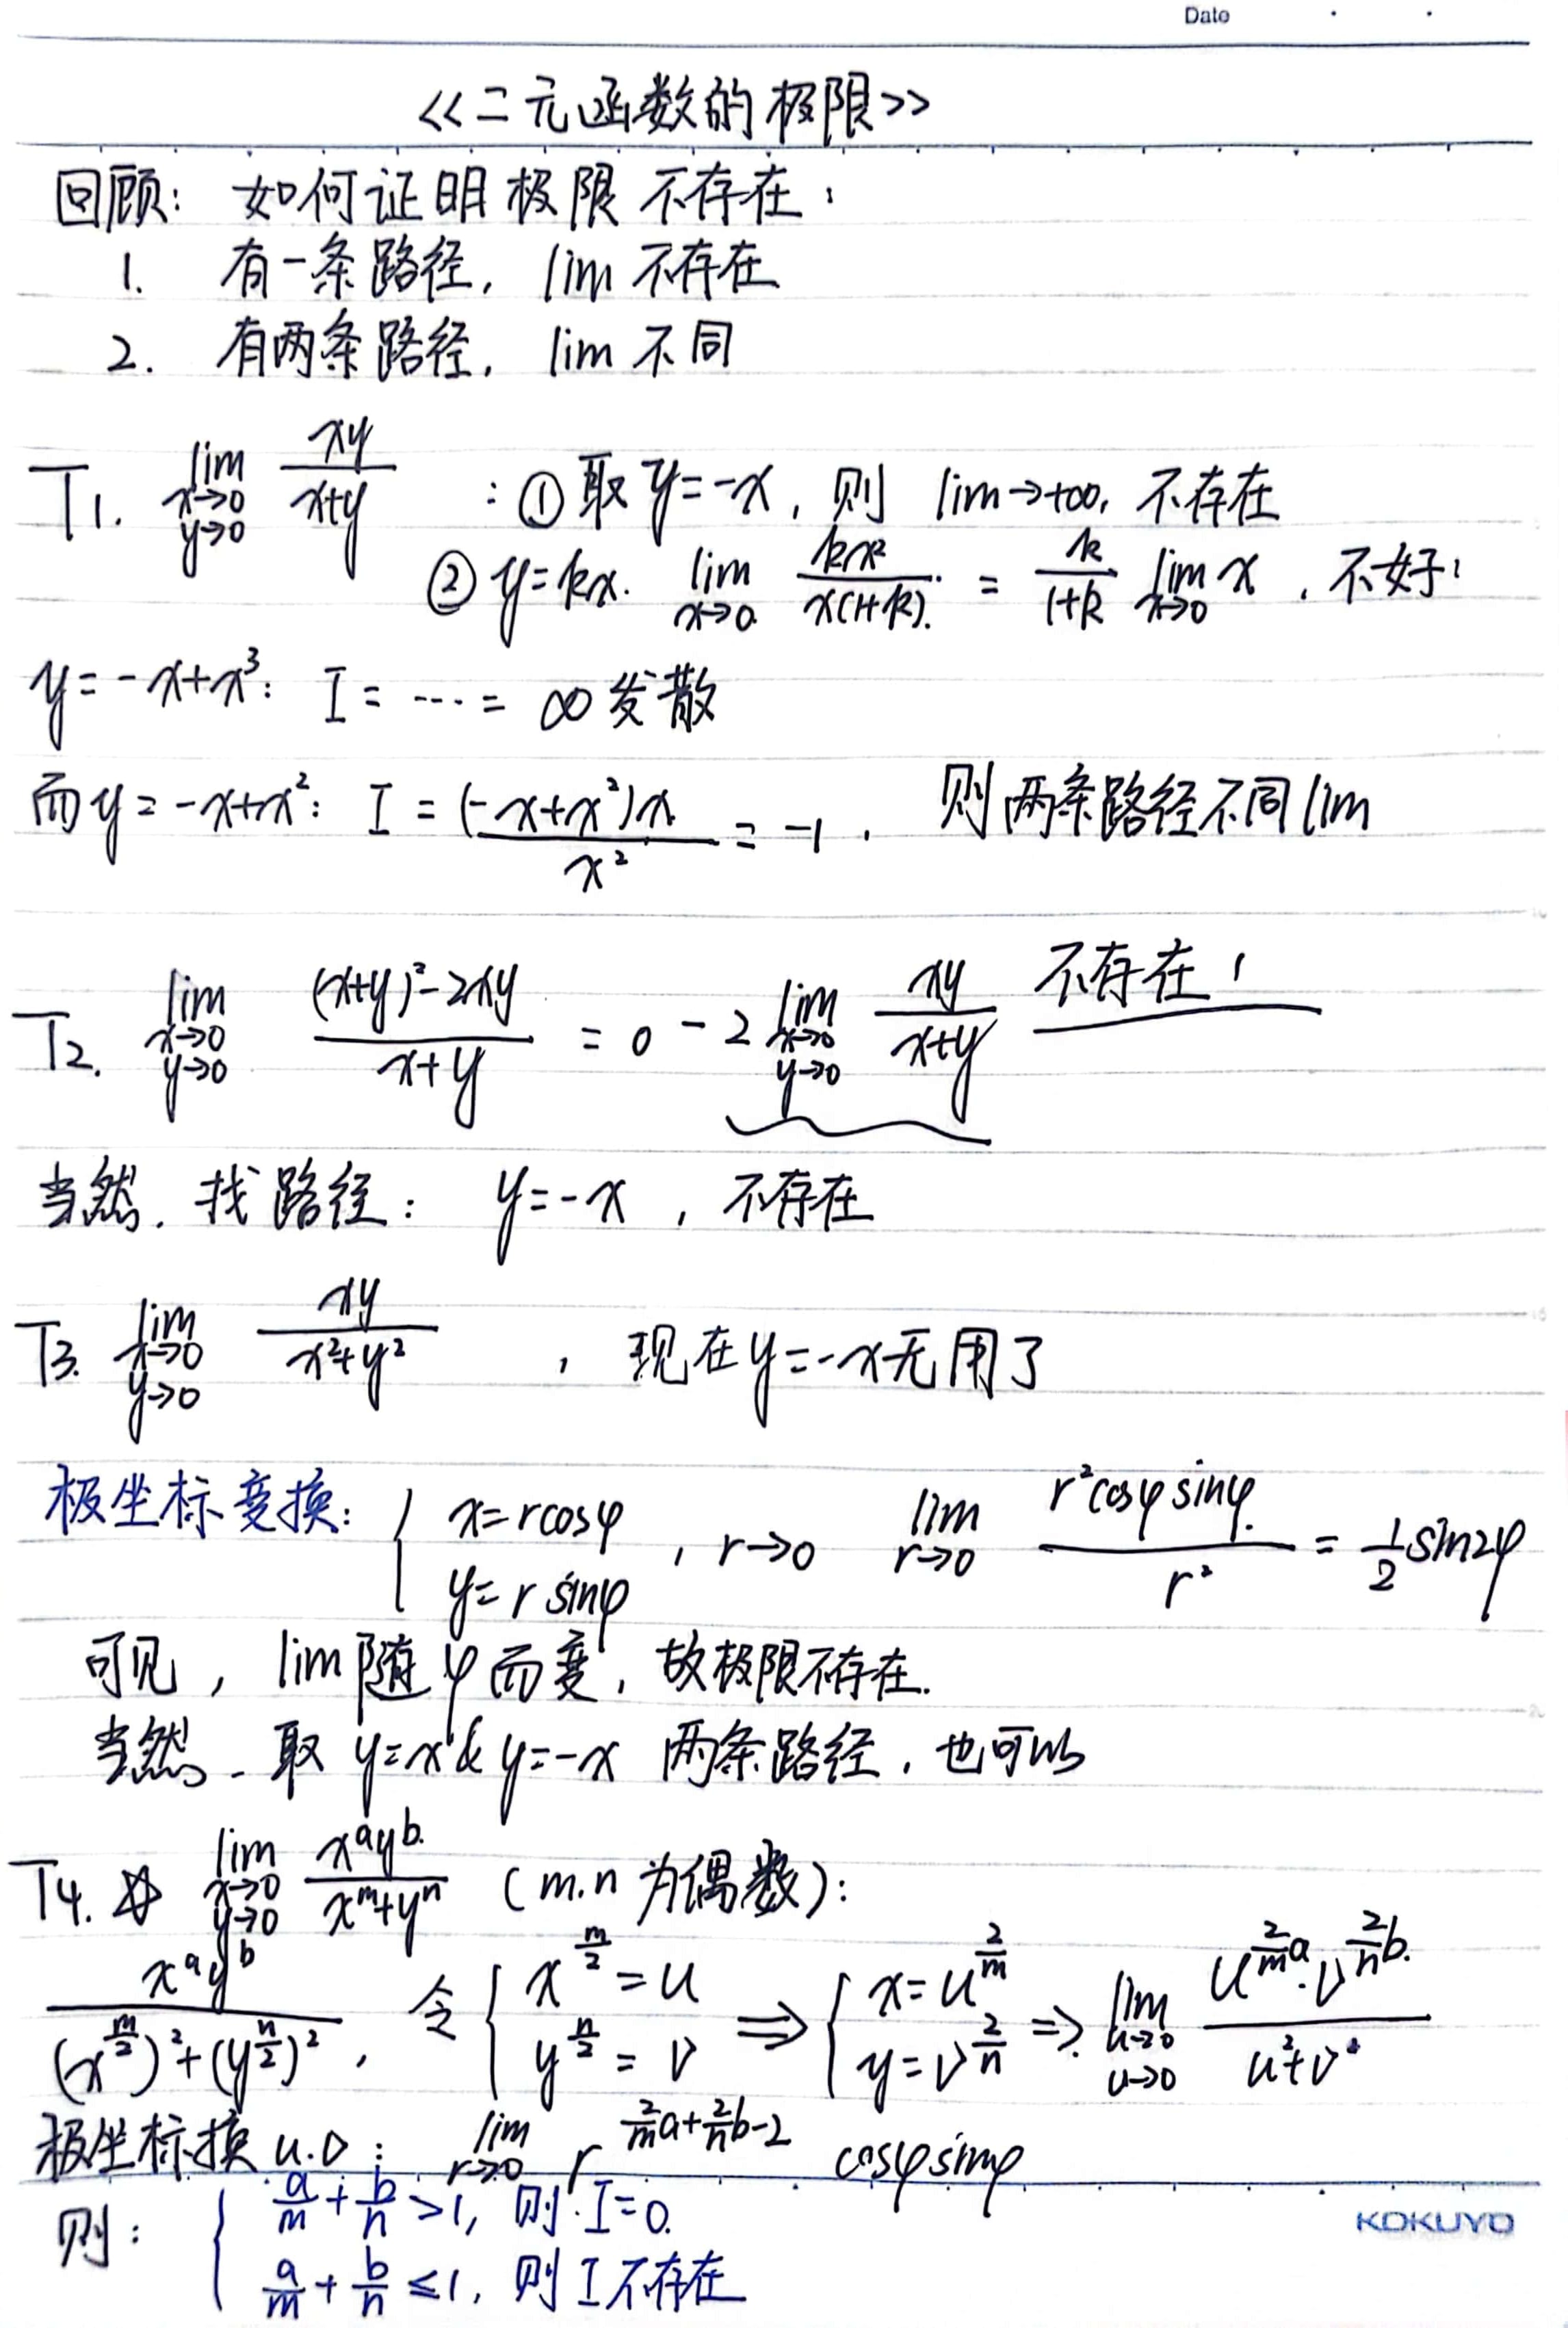 Date
<<二元函数的极限>>
回顾: 如何证明极限不存在:
1. 有一条路径, lim 不存在
2. 有两条路径, lim 不同
T1. lim_{x→0, y→0} xy/(x+y) : ① 取 y=-x, 则 lim→+∞, 不存在
② y=kx. lim_{x→0} kx²/(x(1+k)) = k/(1+k) lim_{x→0} x , 不好!
y=-x+x³: I = ---- = ∞ 发散
而 y=-x+x²: I = (-x+x²)x/x² = -1 , 则两条路径不同 lim
T2. lim_{x→0, y→0} ((x+y)²-2xy)/(x+y) = 0 - 2 lim_{x→0, y→0} xy/(x+y) 不存在!
当然, 找路径: y=-x , 不存在
T3. lim_{x→0, y→0} xy/(x²+y²) , 现在 y=-x 无用了
极坐标变换: { x=rcosφ, y=r sinφ , r→0 lim_{r→0} r²cosφsinφ/r² = 1/2 sin2φ
可见, lim 随 φ 而变, 故极限不存在.
当然, 取 y=x & y=-x 两条路径, 也可以
T4. lim_{x→0, y→0} x^a y^b/(x^m+y^n) (m.n 为偶数):
x^a y^b/((x^{m/2})²+(y^{n/2})²) , 令 { x^{m/2}=u, y^{n/2}=v ⇒ { x=u^{2/m}, y=v^{2/n} ⇒ lim_{u→0, u→0} u^{2/m a}·v^{2/n b}/(u²+v²)
极坐标换 u.v : lim_{r→0} r^{2/m a+2/n b-2} cosφsinφ
则: { a/m + b/n >1, 则 I=0.
a/m + b/n ≤1, 则 I 不存在
KOKUYO